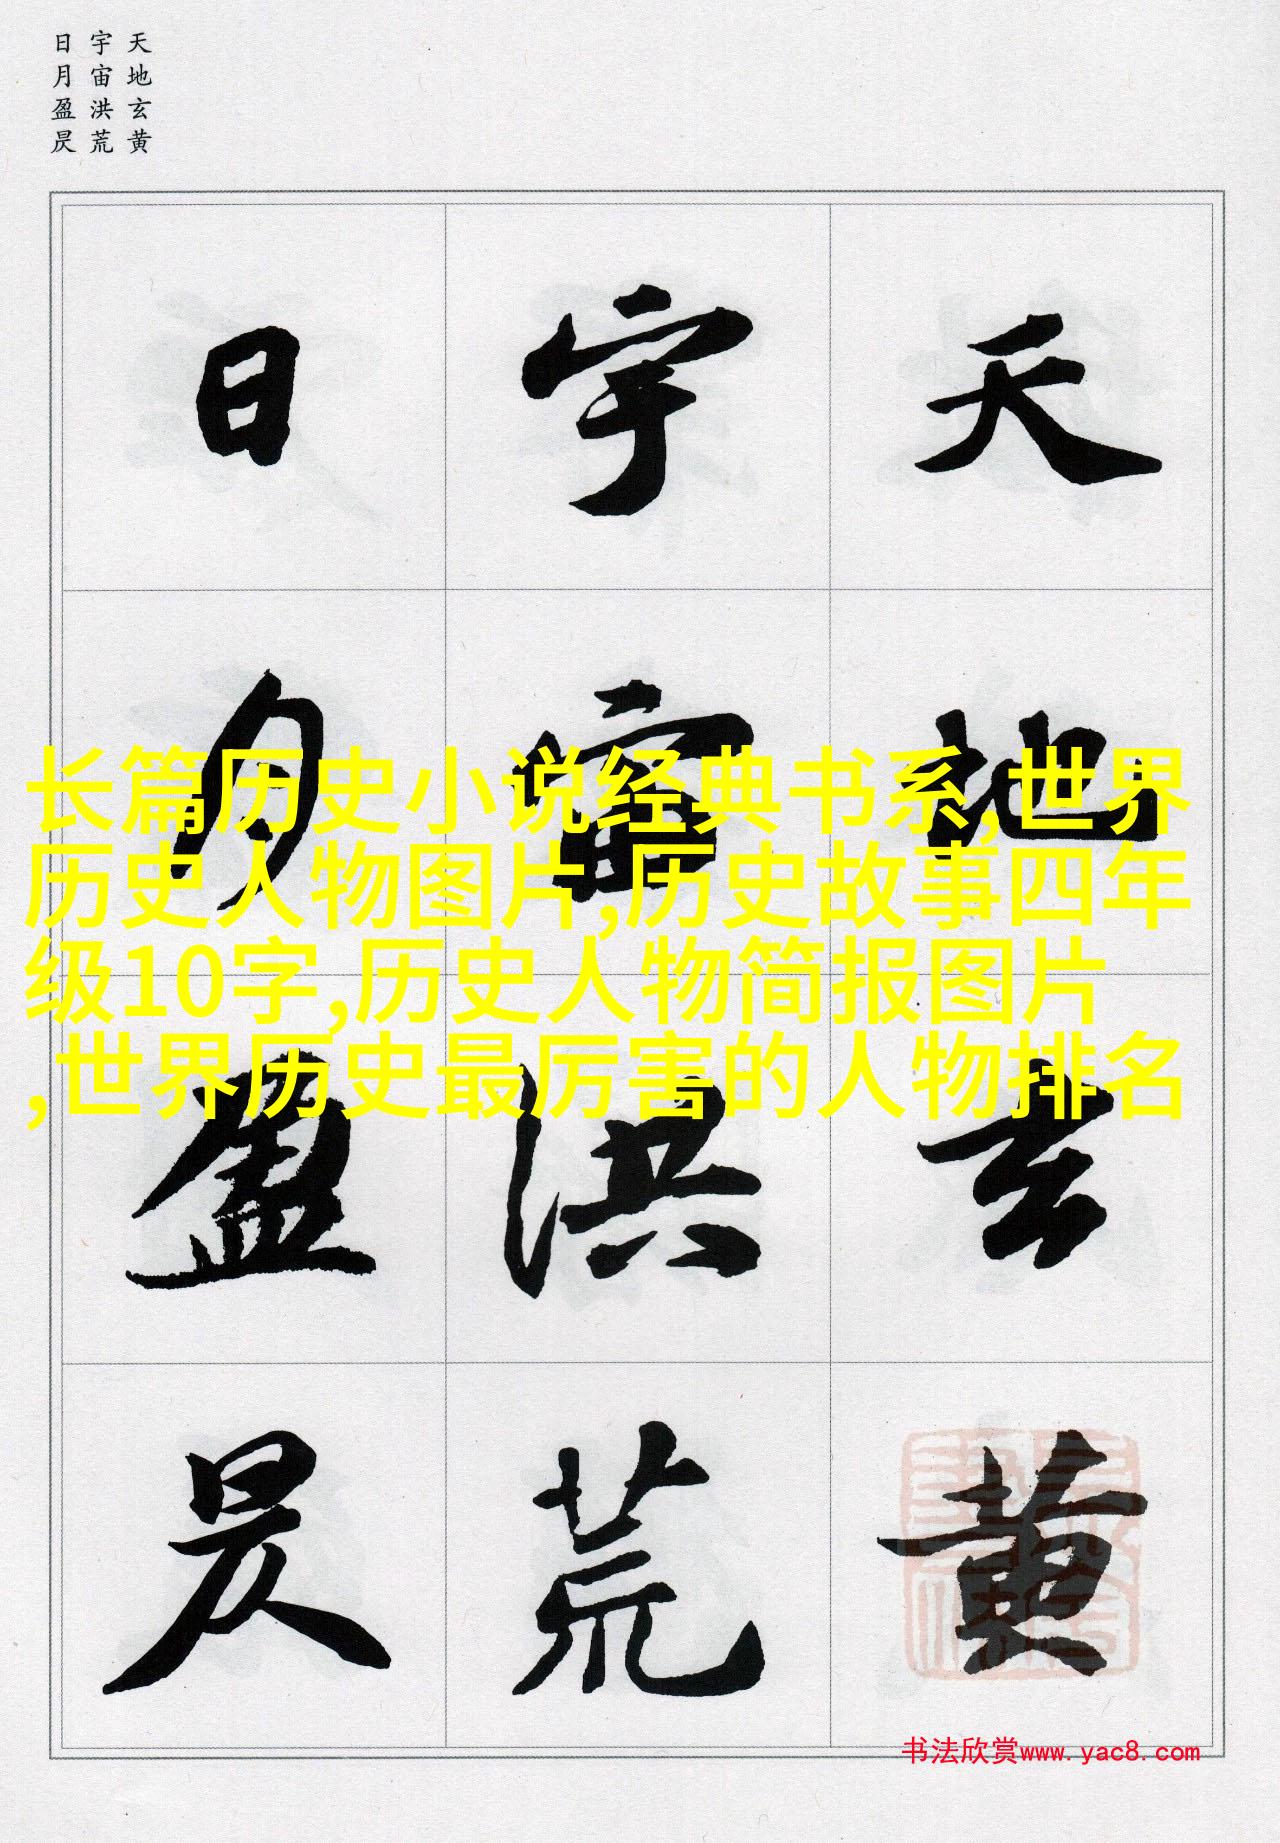 天地玄黄
宇宙洪荒
日月盈昃
天地玄黄
宇宙洪荒
日月盈昃
长篇历史小说经典书系,世界
历史人物图片,历史故事四年
级10字,历史人物简报图片
,世界历史最厉害的人物排名
书法欣赏www.yac8.com